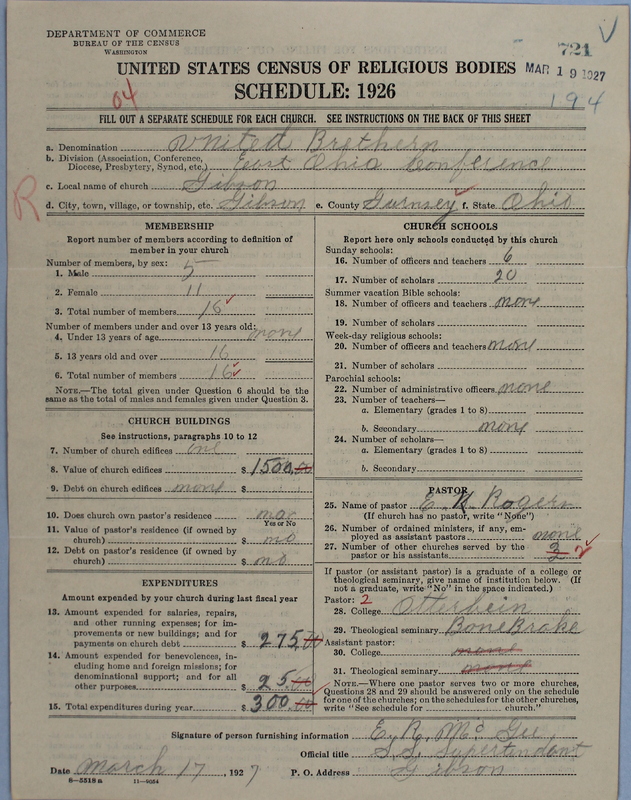 DEPARTMENT OF COMMERCE
BUREAU OF THE CENSUS
WASHINGTON
721
MAR 19 1927
UNITED STATES CENSUS OF RELIGIOUS BODIES
SCHEDULE: 1926
04
194
FILL OUT A SEPARATE SCHEDULE FOR EACH CHURCH. SEE INSTRUCTIONS ON THE BACK OF THIS SHEET
a. Denomination United Brethern
b. Division (Association, Conference, Diocese, Presbytery, Synod, etc.) East Ohio Conference
c. Local name of church Gibson
R
d. City, town, village, or township, etc. Gibson e. County Gurnsey f. State Ohio
MEMBERSHIP
Report number of members according to definition of
member in your church
Number of members, by sex:
1. Male 5
2. Female 11
3. Total number of members 16
Number of members under and over 13 years old:
4. Under 13 years of age none
5. 13 years old and over 16
6. Total number of members 16
NOTE.—The total given under Question 6 should be the
same as the total of males and females given under Question 3.
CHURCH BUILDINGS
See instructions, paragraphs 10 to 12
7. Number of church edifices one
8. Value of church edifices $ 1500.00
9. Debt on church edifices none $
10. Does church own pastor's residence
Yes or No
11. Value of pastor's residence (if owned by
church) $ no
12. Debt on pastor's residence (if owned by
church) $ no
EXPENDITURES
Amount expended by your church during last fiscal year
13. Amount expended for salaries, repairs,
and other running expenses; for im-
provements or new buildings; and for
payments on church debt $ 275.00
14. Amount expended for benevolences, in-
cluding home and foreign missions; for
denominational support; and for all
other purposes $ 25.00
15. Total expenditures during year $ 300.00
CHURCH SCHOOLS
Report here only schools conducted by this church
Sunday schools:
16. Number of officers and teachers 6
17. Number of scholars 20
Summer vacation Bible schools:
18. Number of officers and teachers none
19. Number of scholars
Week-day religious schools:
20. Number of officers and teachers none
21. Number of scholars
Parochial schools:
22. Number of administrative officers none
23. Number of teachers—
a. Elementary (grades 1 to 8)
b. Secondary none
24. Number of scholars—
a. Elementary (grades 1 to 8)
b. Secondary
PASTOR
25. Name of pastor E. Rogers
(If church has no pastor, write "None")
26. Number of ordained ministers, if any, em-
ployed as assistant pastors none
27. Number of other churches served by the
pastor or his assistants 3 2
If pastor (or assistant pastor) is a graduate of a college or
theological seminary, give name of institution below. (If
not a graduate, write "No" in the space indicated.)
Pastor: 2
28. College Otterbein
29. Theological seminary BoneBrake
Assistant pastor:
30. College none
31. Theological seminary none
NOTE.—Where one pastor serves two or more churches,
Questions 28 and 29 should be answered only on the schedule
for one of the churches; on the schedules for the other churches,
write "See schedule for church."
Signature of person furnishing information E. R. McGee
Official title S.S. Supertendant
Date March 17, 1927 P. O. Address Gibson
8—5518 a 11—9054